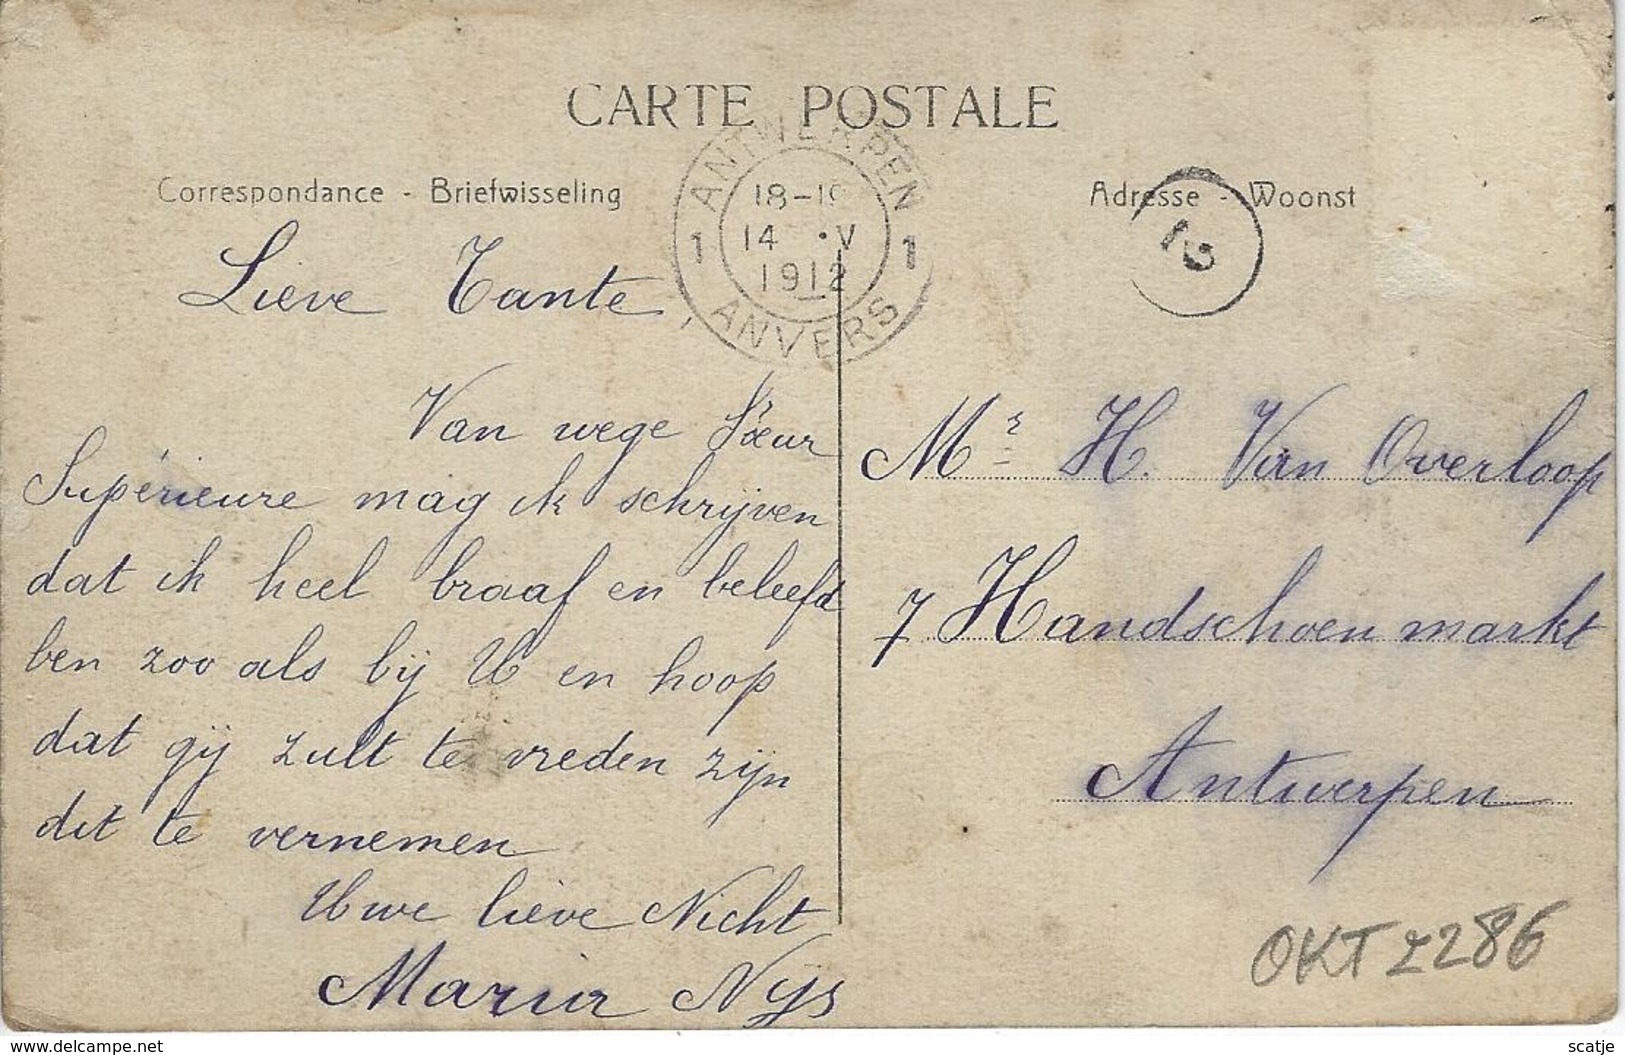 CARTE POSTALE
Correspondance - Briefwisseling
Adresse - Woonst
ANTWERPEN
18-19
1 14 • V 1
1912
ANVERS
Lieve Tante,
Van wege Sœur
Supérieure mag ik schrijven
dat ik heel braaf en beleefd
ben zoo als bij U en hoop
dat gij zult te vreden zijn
dit te vernemen
Uwe lieve Nicht
Maria Nijs
Mr H. Van Overloop
7 Handschoen markt
Antwerpen
OKT 2286
delcampe.net
scatje